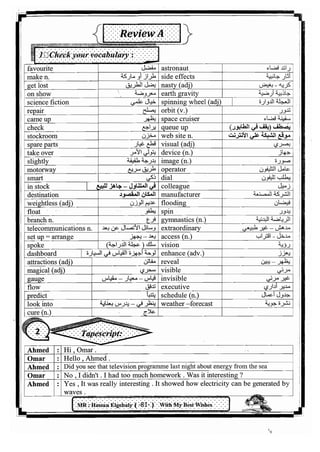 Review A
1- Check your vocabulary :
favourite مفضل astronaut رائد فضاء
make n. طراز أو ماركة side effects آثار جانبية
get lost يضل الطريق nasty (adj) كريه - بغيض
on show معروضة earth gravity جاذبية أرضية
science fiction خيال علمي spinning wheel (adj) العجلة الدوارة
repair يصلح orbit (v.) تدور
came up يظهر space cruiser سفينة فضاء
check يراجع queue up يصطف (يقف في الطابور)
stockroom مخزن web site n. موقع الشبكة علي الأنترنت
spare parts قطع غيار visual (adj) بصري
take over يتولي الأمر device (n.) جهاز
slightly بدرجة طفيفة image (n.) صورة
motorway طريق سريع operator عامل التليفون
smart ذكي dial يطلب تليفون
in stock في المتناول – جاهز للبيع colleague زميل
destination المكان المقصود manufacturer الشركة المصنعة
weightless (adj) عديم الوزن flooding فيضان
float يطفو spin يدور
branch n. فرع gymnastics (n.) الرياضة البدنية
telecommunications n. وسائل الأتصال عن بعد extraordinary مدهش – غير طبيعي
set up = arrange يعد – يجهز access (n.) مدخل - اقتراب
spoke سلك ( عجلة الدراجة) vision رؤية
dashboard لوحة أجهزة القياس في السيارة enhance (adv.) يعزز
attractions (adj) مفاتن reveal يظهر – يبين
magical (adj) سحري visible مرئي
gauge قياس – معيار – مقياس invisible غير مرئي
flow تدفق executive مدير أداري
predict يتنبأ schedule (n.) جدول أعمال
look into ينظر في – يدرس بعناية weather –forecast نشرة جوية
cure (n.) علاج
2 Tapescript:
Ahmed : Hi , Omar .
Omar : Hello , Ahmed .
Ahmed : Did you see that television programme last night about energy from the sea
Omar : No , I didn't . I had too much homework . Was it interesting ?
Ahmed : Yes , It was really interesting . It showed how electricity can be generated by
waves .
MR : Hassan Elgebaly ( -81- ) With My Best Wishes